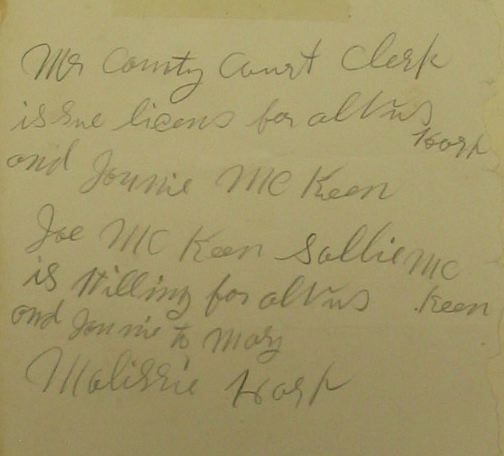 Mr County Court Clerk
issue licens for altus
and Jonnie Mc Keen
Joe Mc Keen Sallie Mc
is Willing for altus Keen
and Jonnie to Mary
Malissie